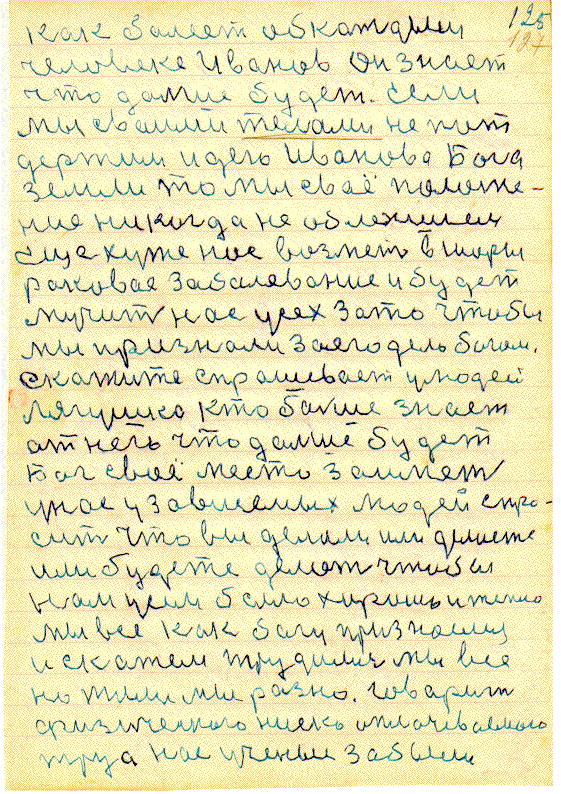 125
127
как болеет об каждым
человеке Иванов Он знает
что дальше будет. Если
мы своими телами не пот
держим идею Иванова Бога
земли то мы своё положе-
ние никогда не облехшим
Еще хуже нас возмет в шоры
раковае заболевание и будет
мучит нас усех за то чтобы
мы признали за его дель богом.
Скажите спрашивает улюдей
лягушка кто больше знает
от неё что дальше будет
Бог своё место займет
унас у зависемых людей спро-
сит что вы делали или делаете
или будете делат чтобы
нам усем было хорошо и тепло
мы все как богу признаемся
и скажем трудились мы все
но жили мы разно. Говорит
физического низко оплачеваемого
труда нас ученые забыли